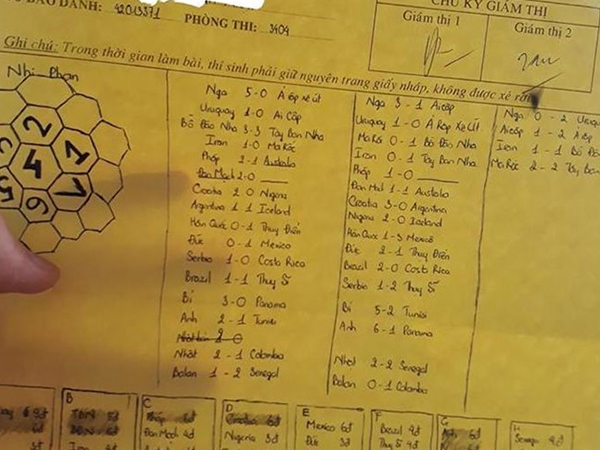 BÁO DANH: 42013371
PHÒNG THI: 3404
CHỮ KÝ GIÁM THỊ
Giám thị 1
Giám thị 2
Ghi chú: Trong thời gian làm bài, thí sinh phải giữ nguyên trang giấy nháp, không được xé rời
Nhị Phan
2
4
1
1
5
6
Nga 5-0 Ả Rập xê út
Uruguay 1-0 Ai Cập
Bồ Đào Nha 3-3 Tây Ban Nha
Iran 1-0 Ma Rốc
Pháp 2-1 Australia
Đan Mạch 2-0
Croatia 2-0 Nigeria
Argentina 1-1 Iceland
Hàn Quốc 0-1 Thụy Điển
Đức 0-1 Mexico
Serbia 1-0 Costa Rica
Brazil 1-1 Thụy Sĩ
Bỉ 3-0 Panama
Anh 2-1 Tunisi
Nhật 2-1 Colombia
Balan 1-2 Senegal
Nga 3-1 Ai Cập
Uruguay 1-0 Ả Rập Xê Út
Ma Rốc 0-1 Bồ Đào Nha
Iran 0-1 Tây Ban Nha
Pháp 1-0
Đan Mạch 1-1 Australia
Croatia 3-0 Argentina
Nigeria 2-0 Iceland
Hàn Quốc 1-3 Mexicô
Đức 2-1 Thụy Điển
Brazil 2-0 Costa Rica
Serbia 1-2 Thụy Sĩ
Bỉ 5-2 Tunisi
Anh 6-1 Panama
Nhật 2-2 Senegal
Balan 0-1 Colombia
Nga 0-2 Urug
Ai Cập 1-2 Ả Rập
Iran 1-1 Bồ Đ
Ma Rốc 2-2 Tây Ban
B
TBN 5đ
BĐN 5đ
Iran
C
Pháp 6đ
Đan Mạch 4đ
D
Croatia 6đ
Nigeria 3đ
E
Mexico 6đ
Đức 3đ
F
Brazil 4đ
Thụy Sĩ 4đ
G
Anh 6đ
H
Senegal 4đ